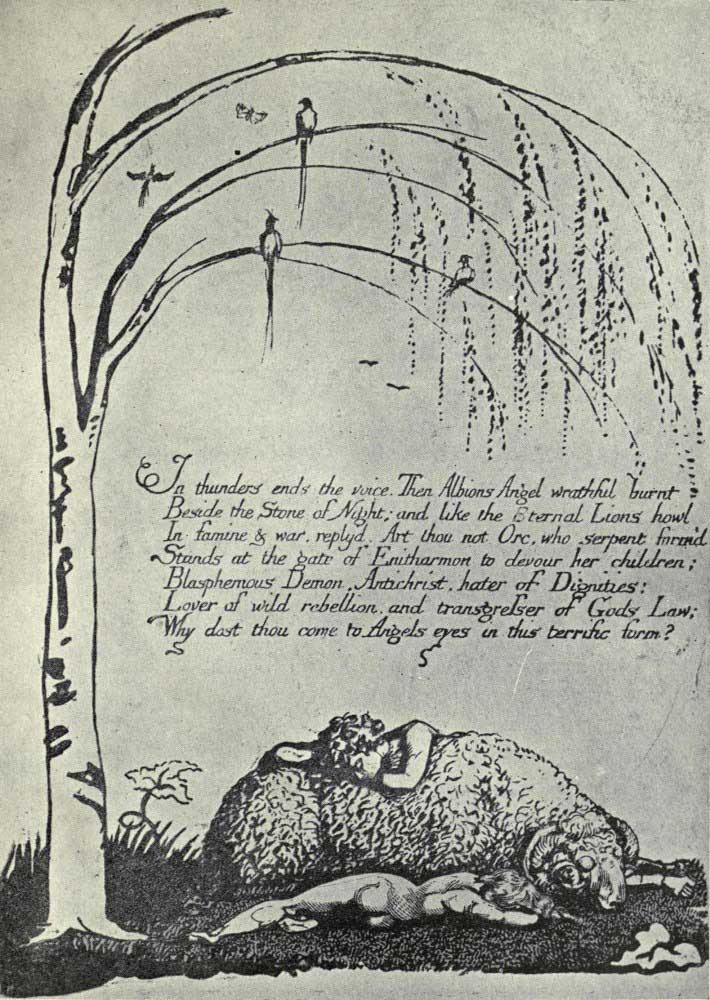 In thunders ends the voice. Then Albions Angel wrathful burnt
Beside the Stone of Night; and like the Eternal Lions howl
In famine & war, replyd. Art thou not Orc, who serpent form'd
Stands at the gate of Enitharmon to devour her children;
Blasphemous Demon, Antichrist, hater of Dignities;
Lover of wild rebellion, and transgreſser of Gods Law;
Why dost thou come to Angels eyes in this terrific form?